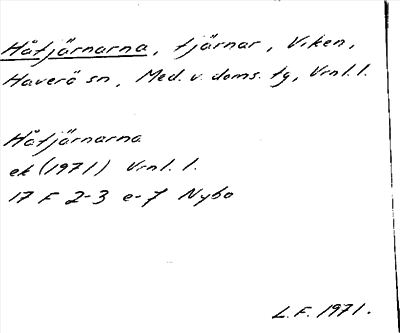 Håtjärnarna, tjärnar, Viken,
Haverö sn, Med. v. doms. tg, Vrnl. l.
Håtjärnarna
ek (1971) Vrnl. l.
17 F 2-3 e-f Nybo
L.F. 1971.